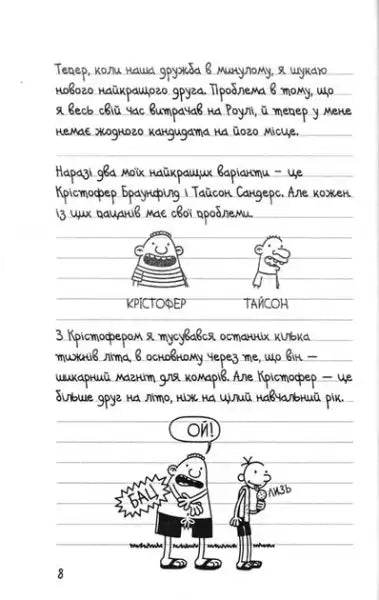 Тепер, коли наша дружба в минулому, я шукаю
нового найкращого друга. Проблема в тому, що
я весь свій час витрачав на Роулі, й тепер у мене
немає жодного кандидата на його місце.
Наразі два моїх найкращих варіанти – це
Крістофер Браунфілд і Тайсон Сандерс. Але кожен
із цих пацанів має свої проблеми.
КРІСТОФЕР
ТАЙСОН
З Крістофером я тусувався останніх кілька
тижнів літа, в основному через те, що він –
шикарний магніт для комарів. Але Крістофер – це
більше друг на літо, ніж на цілий навчальний рік.
ОЙ!
БАЦ
ЛИЗЬ
8